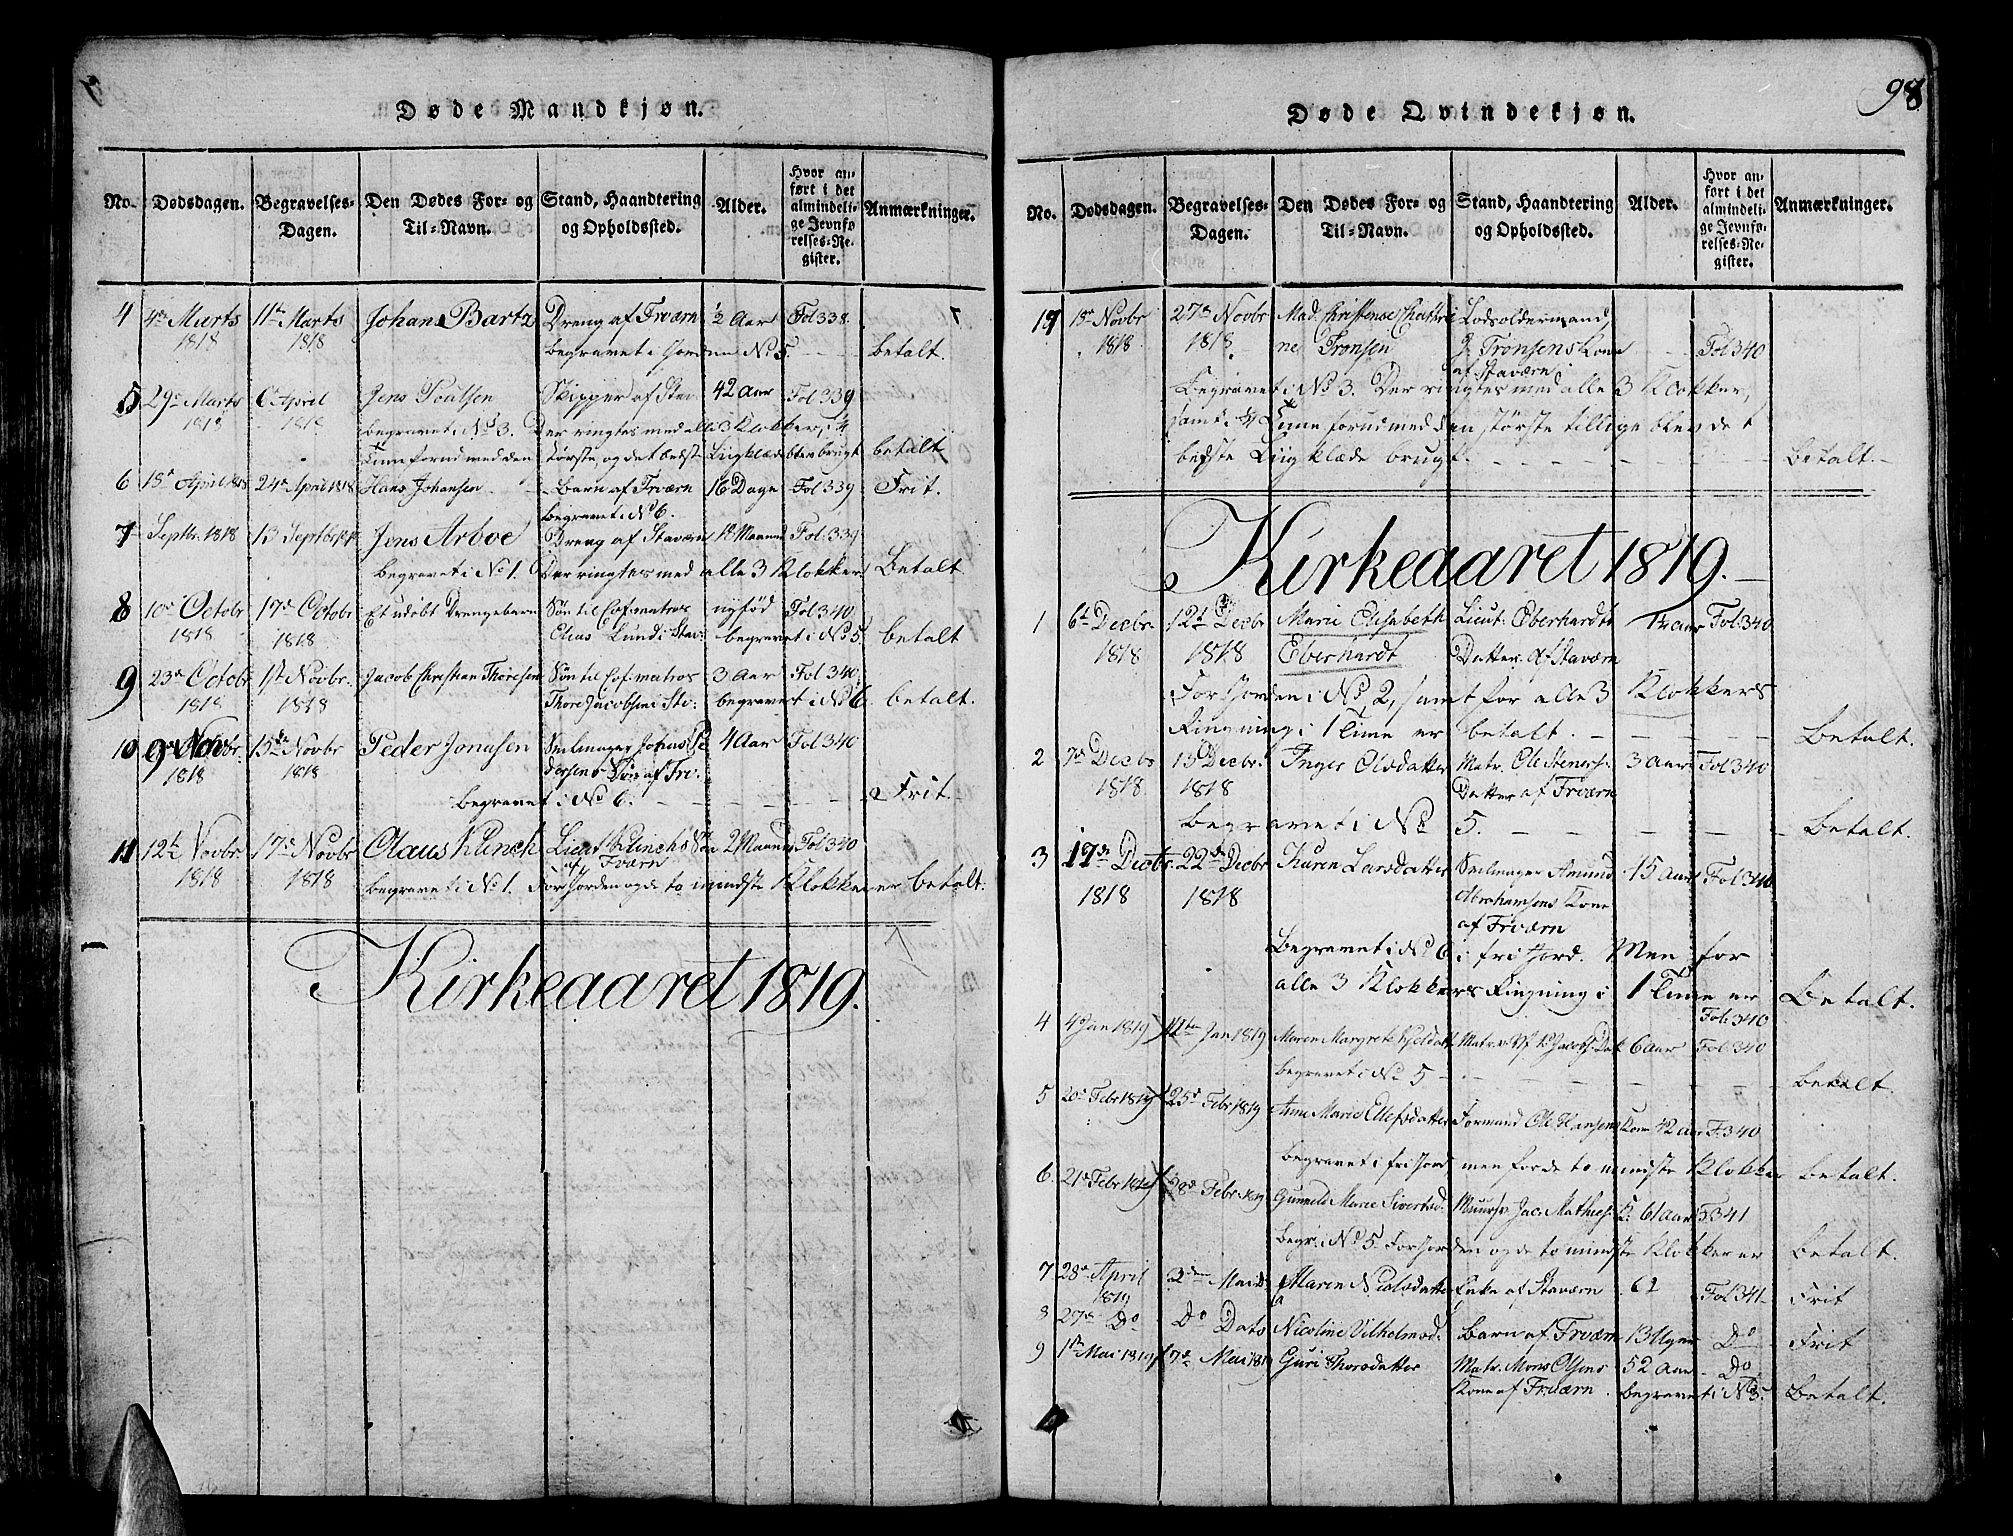 98
Døde Mandkjøn.
No. Dødsdagen. Begravelses-Dagen. Den Dødes For- og Til-Navn. Stand, Haandtering og Opholdssted. Alder. Hvor anført i det almindelige Jevnførelses-Register. Anmærkninger.
4 4de Marts 11te Marts Johan Bartz Dreng af Frværn ½ Aar Fol 338
1818 1818 begravet i Jorden No 5. betalt.
5 29de Marts 6 April Jens Poulsen Skipper af Stav 42 Aar Fol 339
1818 1818 begravet i No 3. Der ringtes med alle 3 Klokker, i 4
Time forud med den største, og det bedste Liigklæde blev brugt betalt
6 15de April 1818 24de April 1818 Hans Johansen Barn af Frværn 16 Dage Fol 339 Frit.
begravet i No 6.
7 Septbr. 1818 13 Septbr Jens Arboe Dreng af Staværn 18 Maaned Fol. 339
begravet i No 1. Der ringtes med alle 3 Klokker. Betalt.
8 10de Octobr 17de Octobr Et udøbt Drengebarn Søn til Cof. matros nyfød Fol 340
1818 1818 Elias Lund i Stav: begravet i No 5. betalt
9 23de Octobr 1st Novbr. Jacob Christian Thoresen Søn til Cof. matros 3 Aar Fol 340.
1818 1818 Thore Jacobsen i Sta: begravet i No 6. betalt.
10 9de Nov 15de Novbr Peder Jonasen Seilmager Johas Pe 4 Aar Fol 340
1818 1818 dersens Søn af Fr.
begravet i No 6. Frit.
11 12te Novbr 17de Novbr Claus Klinck Lieut Klincks Søn 2 Maaned Fol 340
1818 1818 af Fværn
begravet i No 1. For Jorden og de to mindste Klokker er betalt.
Kirkeaaret 1819.
Døde Qvindekjøn.
No. Dødsdagen. Begravelses-Dagen. Den Dødes For- og Til-Navn. Stand, Haandtering og Opholdssted. Alder. Hvor anført i det almindelige Jevnførelses-Register. Anmærkninger.
19 Novbr 27de Novbr Mad. Christense Chatri Lodsoldermand
1818 1818 ne Tronsen J. Tronsens Kone Fol 340
af Staværn
Begravet i No 3. Der ringtes med alle 3 Klokker,
samt i Time forud med den største tillige blev det
bedste Liigklæde brugt. Betalt.
Kirkeaaret 1819.
1 6te Decbr 12te Decbr Marie Elisabeth Lieut: Eberhardts Aar Fol: 340
1818 1818 Eberhardt Datter. af Staværn
For Jorden i No 2, samt for alle 3 Klokkers
Ringning i 1 Time er betalt. Betalt.
2 7de Decbr 13 Decbr. Inger Olsdatter Matr. Ole Steners: 3 Aar Fol 340
1818 1818 Datter af Frværn
begravet i No 5. Betalt.
3 17de Decbr. 22de Decbr Karen Larsdatter Seilmager Amund 45 Aar Fol 340
1818 1818 Abrahamsens Kone
af Frværn
Begravet i No 6 i fri Jord. Men for
alle 3 Klokkers Ringning i 1 Time er Betalt.
Fol. 340
4 4 Jan 1819 Jan 1819 Maren Margrete Kjeldatt Matr. K. Jacobs: Dat 6 Aar Fol. 340
begravet i No 5 betalt.
5 20de Febr 1819 25de Febr 1819 Anne Marie Ellefsdatter Formand Ole Hansens Kone 42 Aar F. 340
begravet i fri Jord men for de to mindste Klokker betalt.
6. 21de Febr 1819 28de Febr. 1819 Gunnild Marie Sivertsd. Muursv. Jac. Mathies: K. 61 Aar F. 341
Begr. i No 5. For Jorden og de to mindste Klokker er betalt.
7 28de April 2den Mai Maren Nielsdatter Enke af Staværn 62 Fol 341 Frit
1819
8 27de Do Do Dato Nicoline Vilhelmsd. Barn af Frværn 13 Uger Do Frit
9 1ste Mai 1819 7de Mai 1819 Guri Thorsdatter Matr. Mons Olsens 52 Aar Do
Kone af Frværn begravet i No 5. Betalt.